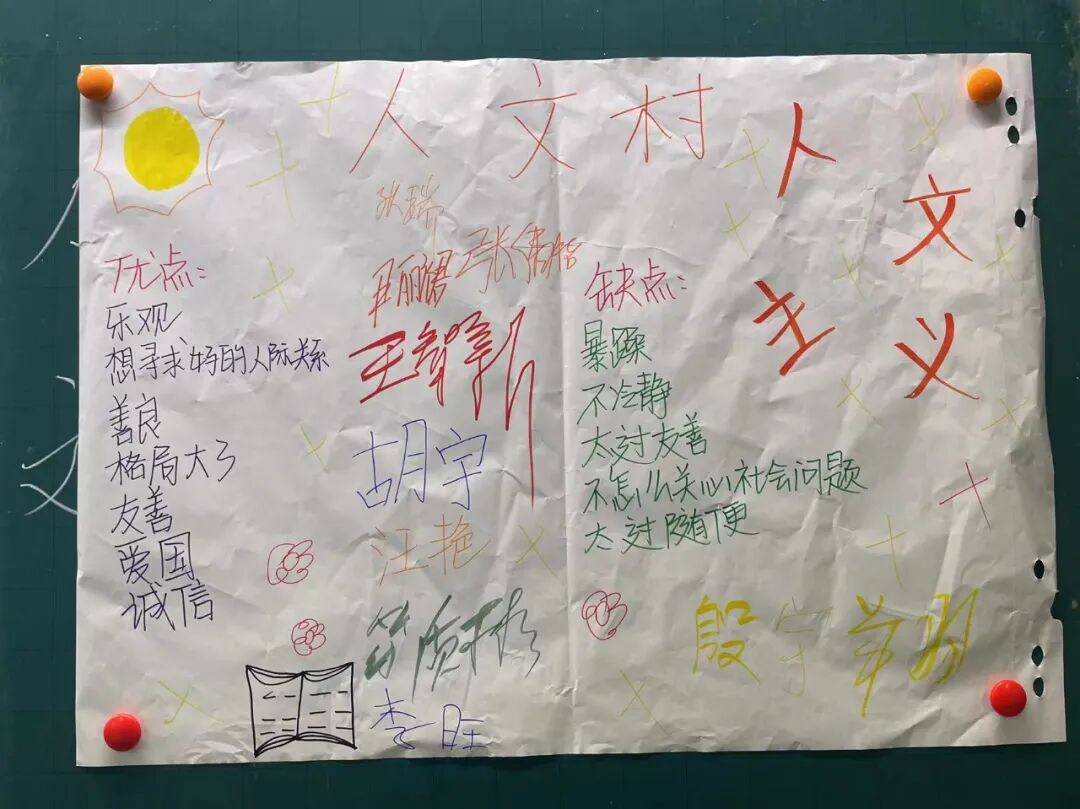 人文村
人文
主义
优点:
乐观
想寻求好的人际关系
善良
格局大了
友善
爱国
诚信
张瑞
胡宇
汪艳
李旺
缺点:
暴躁
不冷静
太过友善
不怎么关心社会问题
太过随便
殷宇
人
文